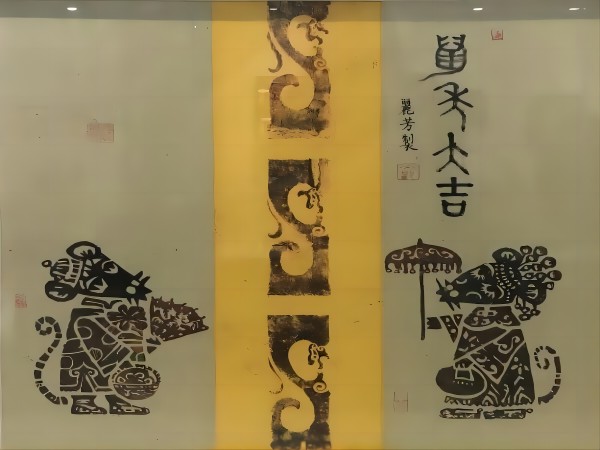 鼠年大吉
麗芳製